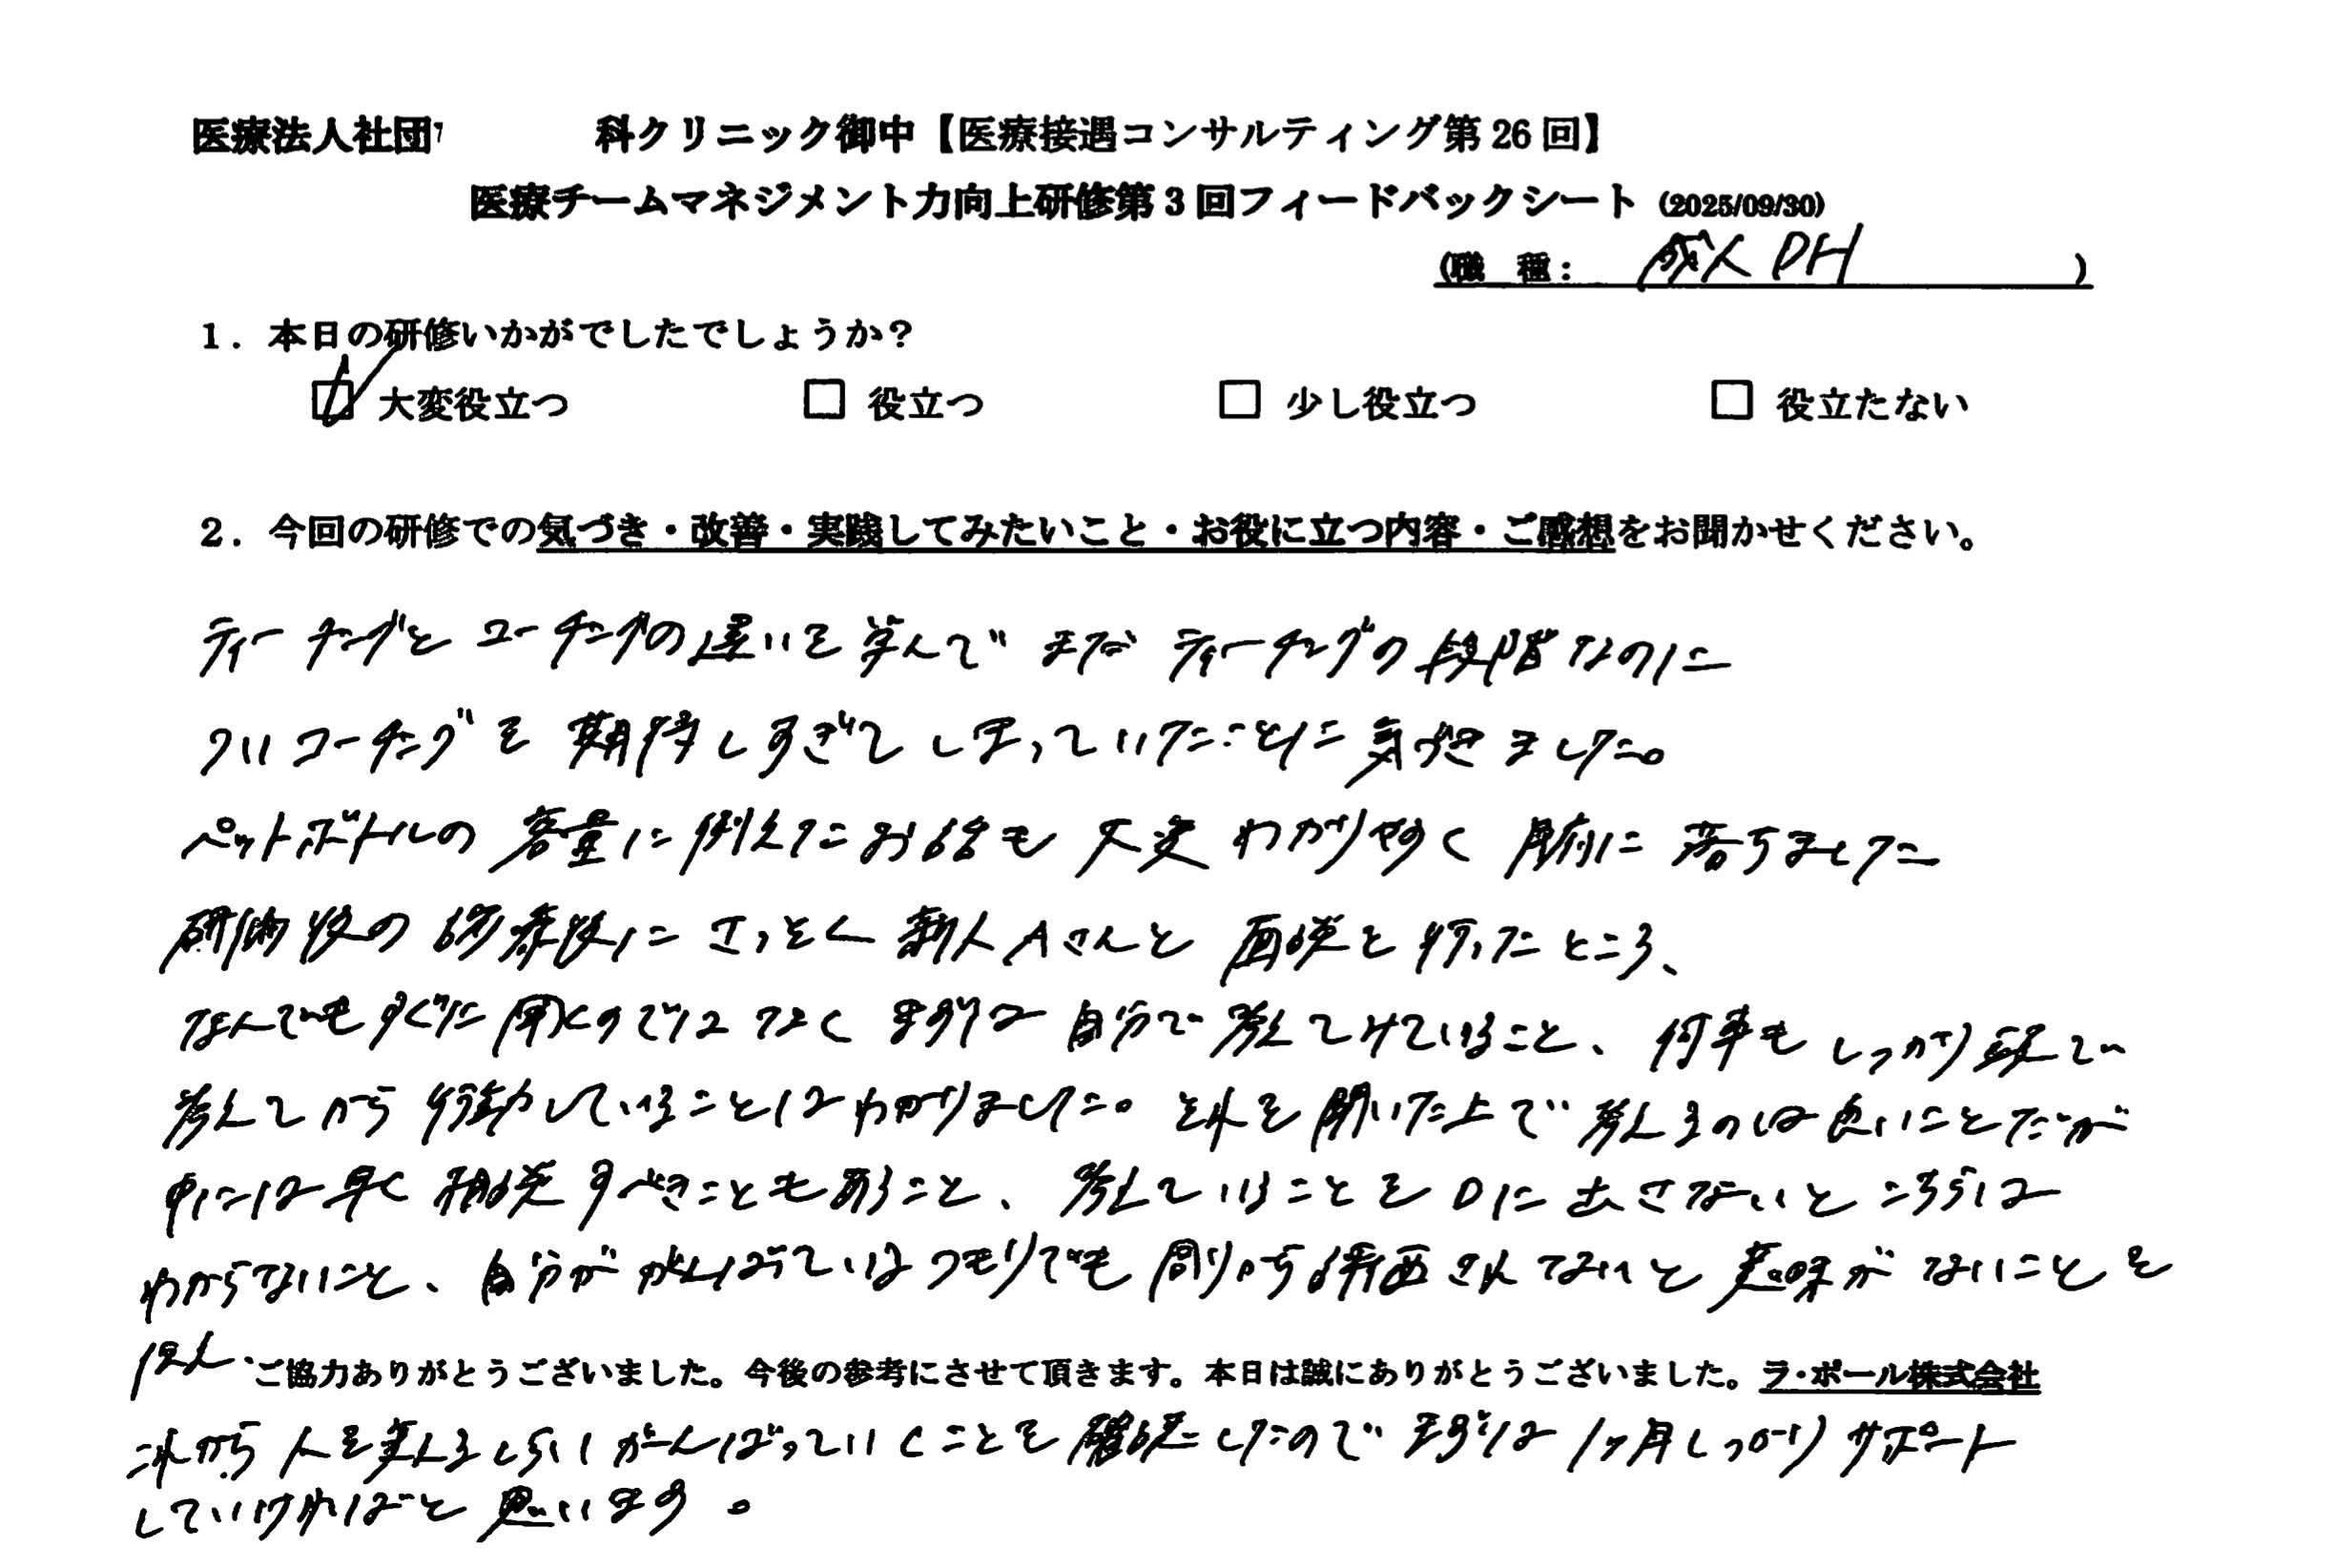 医療法人社団 科クリニック御中【医療接遇コンサルティング第 26 回】
医療チームマネジメント力向上研修第 3 回フィードバックシート (2025/09/30)
(職 種: 成人 DH )
1. 本日の研修いかがでしたでしょうか?
☑ 大変役立つ □ 役立つ □ 少し役立つ □ 役立たない
2. 今回の研修での気づき・改善・実践してみたいこと・お役に立つ内容・ご感想をお聞かせください。
ティーチングとコーチングの違いを学んで まだ ティーチングの段階なのに
ついコーチングを期待しすぎてしまっていたことに気づきました。
ペットボトルの容量に例えたお話も大変わかりやすく腑に落ちました
研修後の診療後にさっそく新人Aさんと面談を行ったところ、
なんでもすぐに聞くのではなく まずは自分で考えてみていること、何事もしっかり
考えてから行動していることはわかりました。それを聞いた上で考えるのは良いことだが
中には早く相談すべきこともあること、考えていることを口に出さないとこちらは
わからないこと、自分ががんばっているつもりでも周りから評価されてないと意味がないことを
ご協力ありがとうございました。今後の参考にさせて頂きます。本日は誠にありがとうございました。ラ・ポール株式会社
これから人を変えるくらいがんばっていくことを確認したのでまずは1ヶ月しっかりサポート
していければと思います。